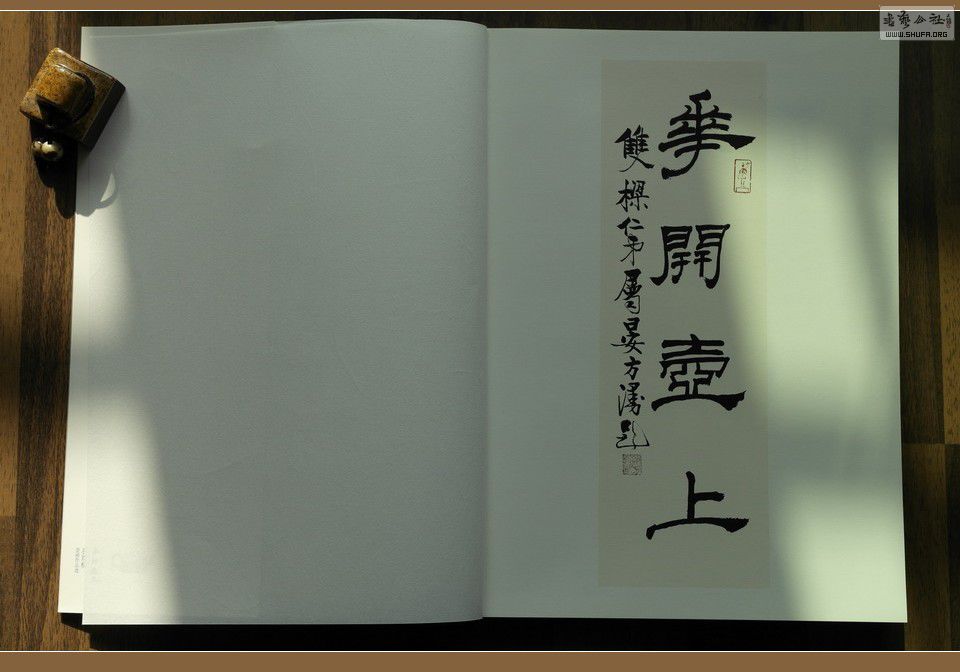 書艺公社
WWW.SHUFA.ORG
華開壺上
雙樑仁弟屬晏方漫題